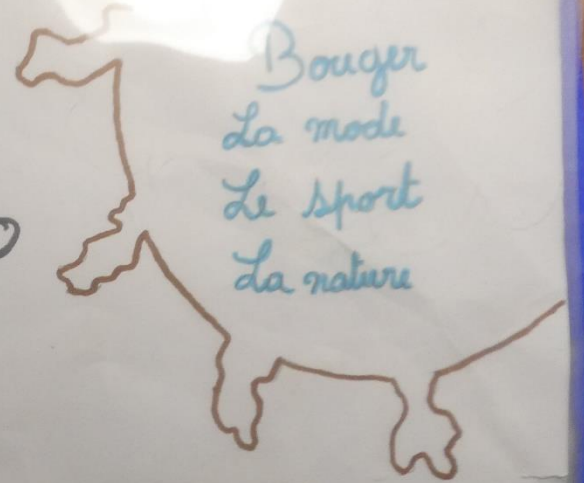 Bouger
La mode
Le sport
La nature